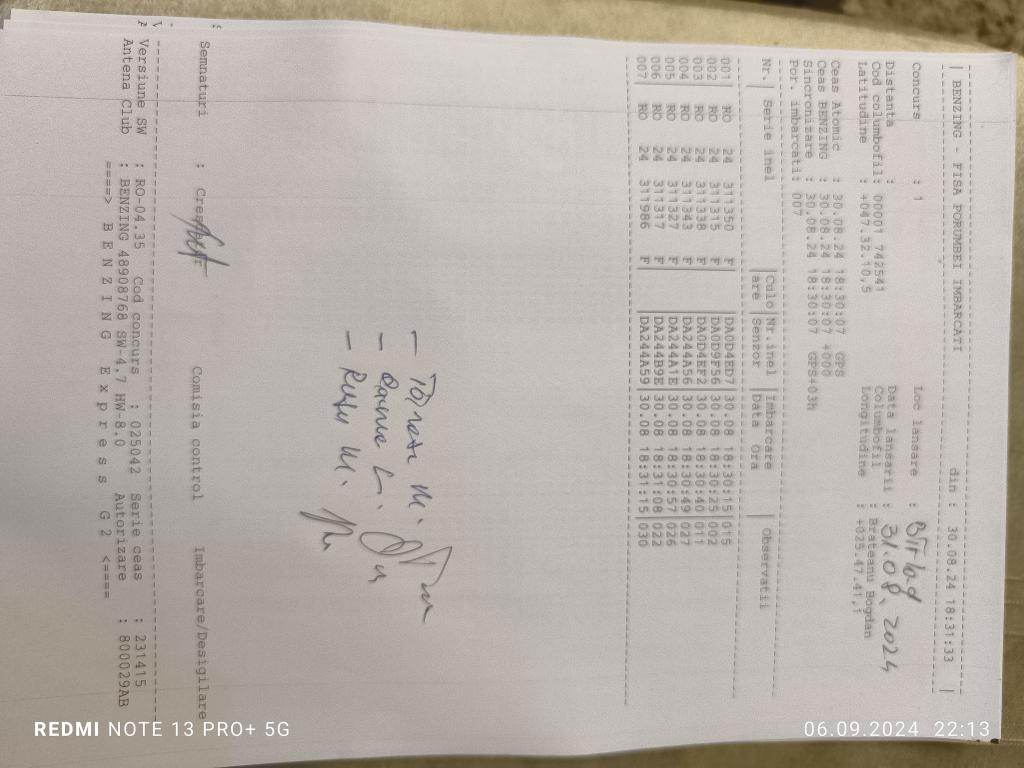 | BENZING - FISA PORUMBEI IMBARCATI din : 30.08.24 18:31:33 |
Concurs : 1 Loc lansare : Bîrlad
Distanta : Data lansarii : 31.08.2024
Cod columbofil: 00001 742541 Columbofil : Brateanu Bogdan
Latitudine : +047.32.10,5 Longitudine : +025.47.41,1
Ceas Atomic : 30.08.24 18:30:07 GPS
Ceas BENZING : 30.08.24 18:30:07 +000
Sincronizare : 30.08.24 18:30:07 GPS+03h
Por. imbarcati: 007
Nr.| Serie inel |Culo|Nr.inel |Imbarcare | Observatii
|are |Senzor |Data Ora |
001| RO 24 311350 F | |DA0D4ED7|30.08 18:30:15|015
002| RO 24 311315 F | |DA0D9F56|30.08 18:30:25|002
003| RO 24 311338 F | |DA0D4EF2|30.08 18:30:40|011
004| RO 24 311343 F | |DA244A56|30.08 18:30:49|027
005| RO 24 311327 F | |DA244A1E|30.08 18:30:57|026
006| RO 24 311317 F | |DA244B9E|30.08 18:31:08|022
007| RO 24 311986 F | |DA244A59|30.08 18:31:15|030
- M.
- L.
- Rusu M.
Semnaturi : Crescator Comisia control Imbarcare/Desigilare
Versiune SW : RO-04.35 Cod concurs : 025042 Serie ceas : 231415
Antena Club : BENZING 48908768 SW-4.7 HW-8.0 Autorizare : 800029AB
====> B E N Z I N G E x p r e s s G 2 <====
REDMI NOTE 13 PRO+ 5G
06.09.2024 22:13